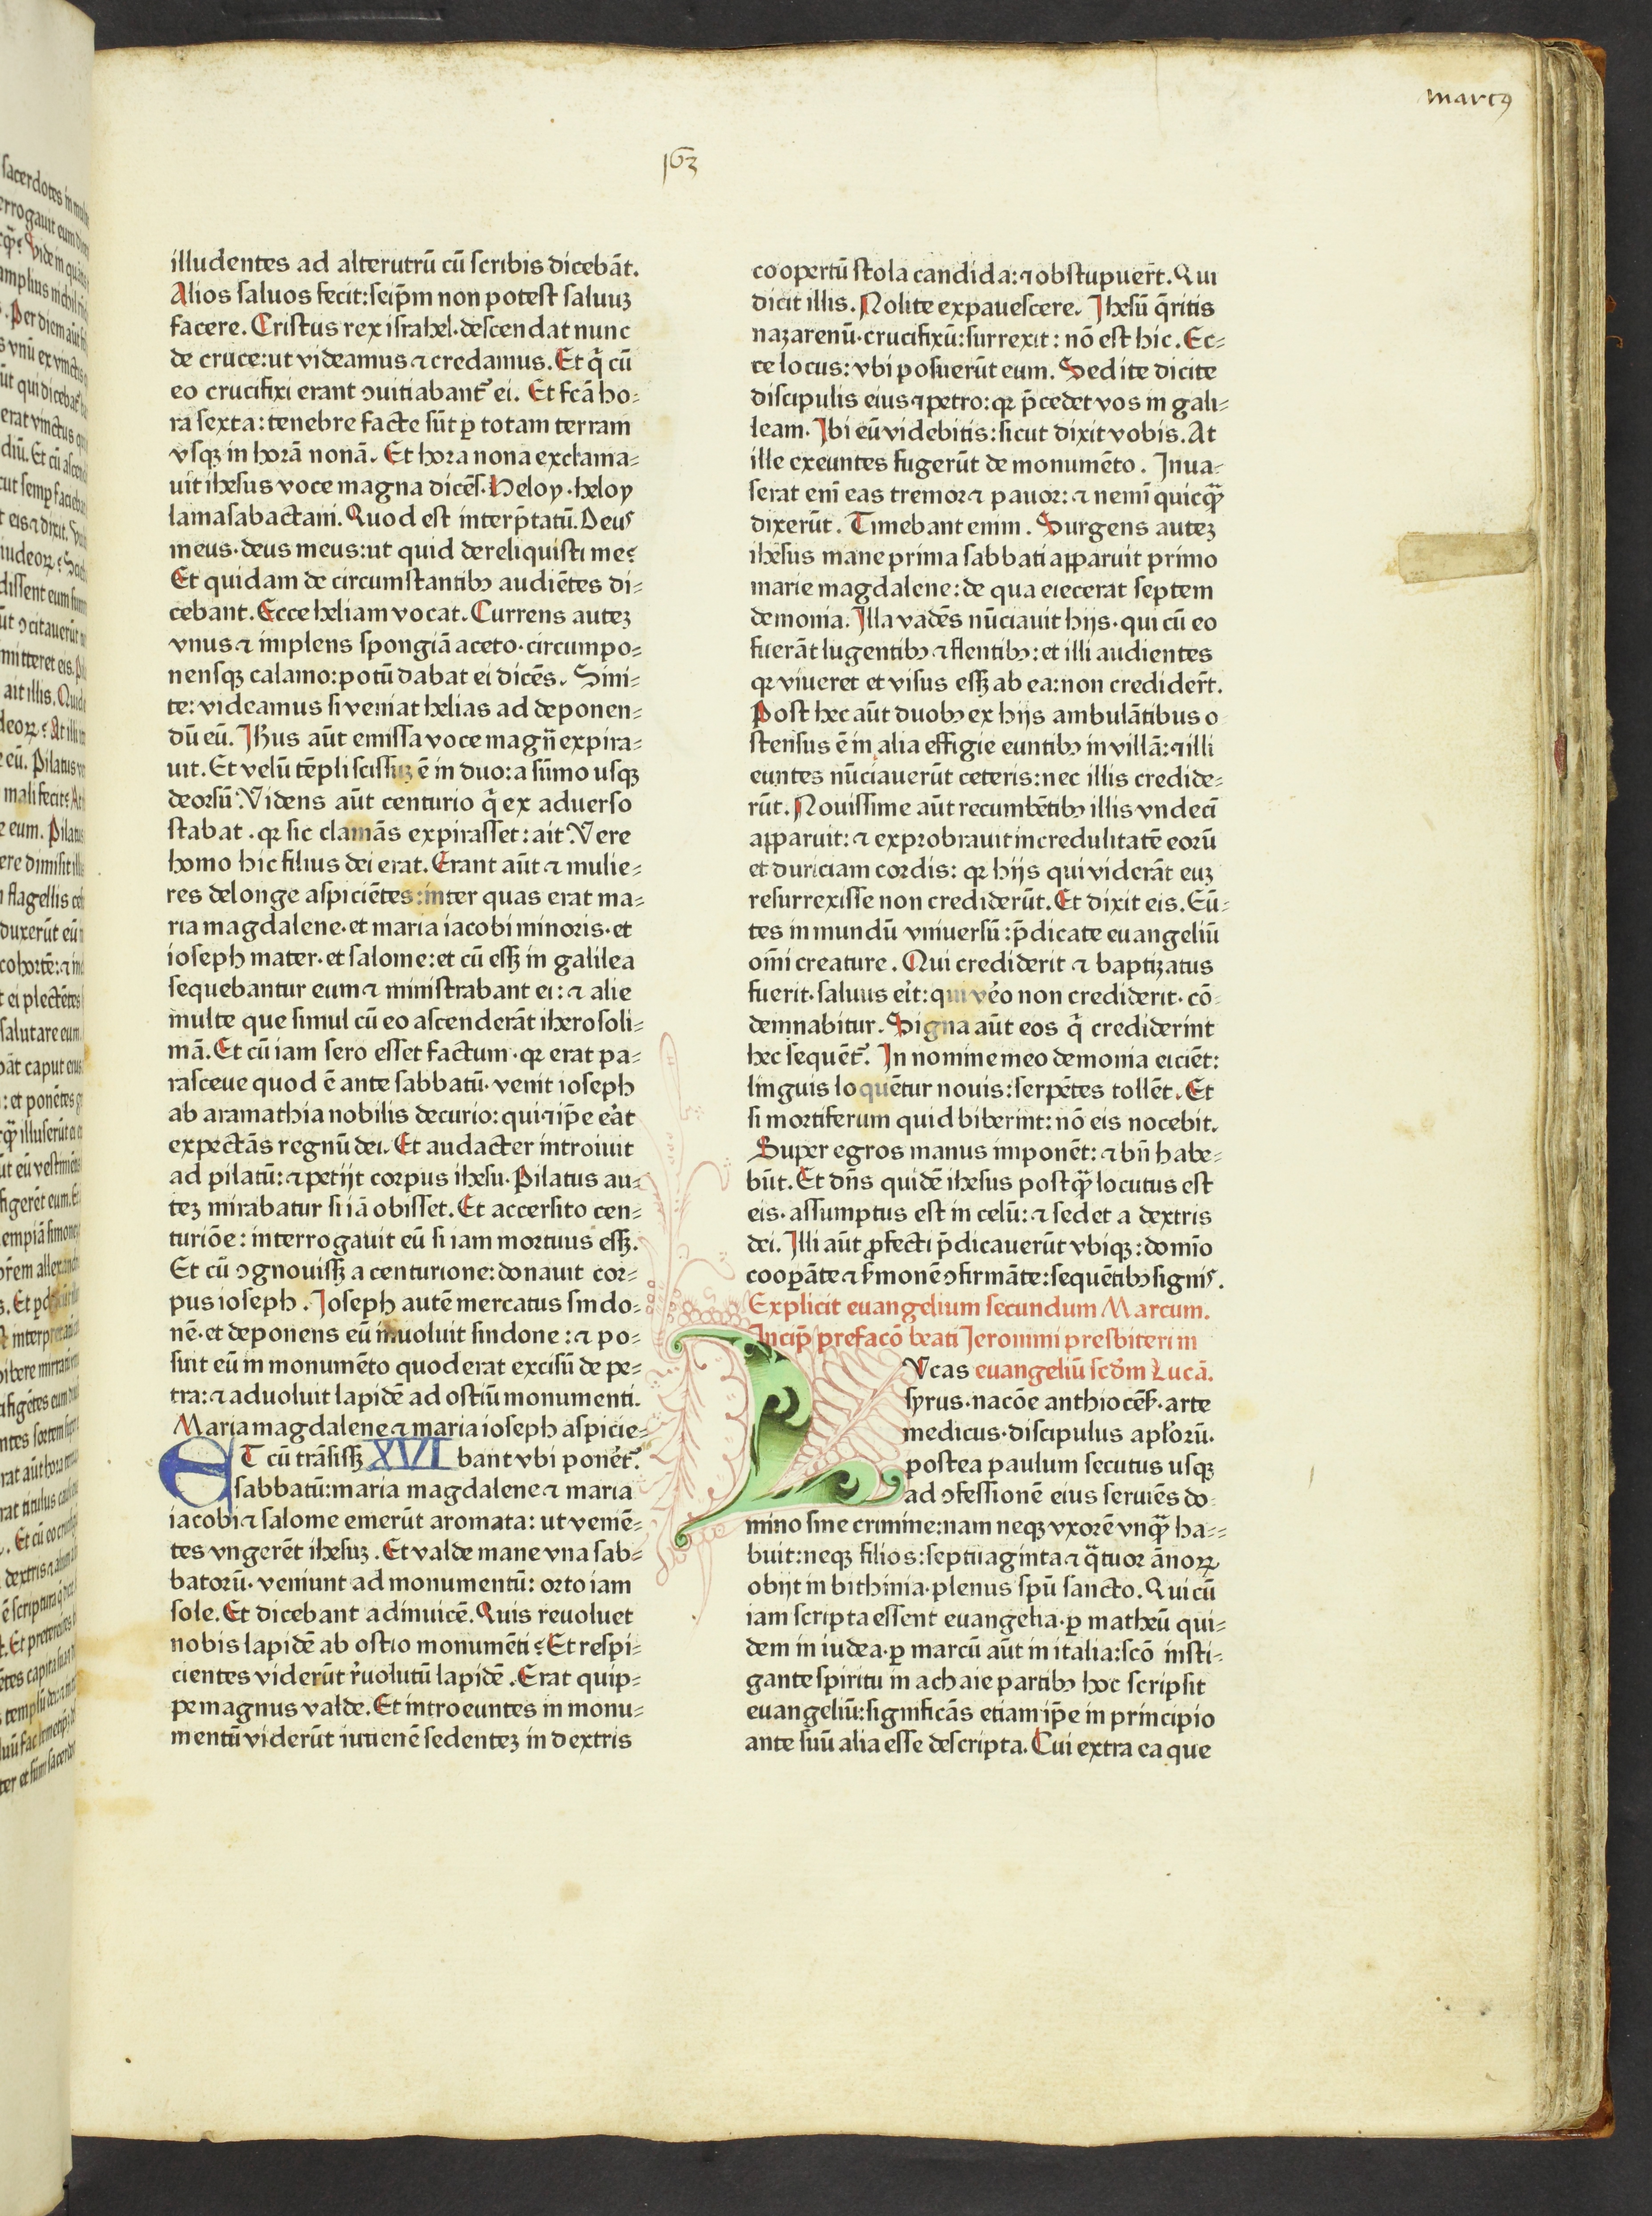 marcꝰ
163
illudentes ad alterutrū cū scribis dicebāt.
Alios saluos fecit: seip̄m non potest saluuꝫ
facere. Cristus rex israhel· descendat nunc
de cruce: ut videamus ⁊ credamus. Et q̄ cū
eo crucifixi erant ↄuitiabant᷑ ei. Et fc̄ā ho⸗
ra sexta: tenebre facte sūt ꝑ totam terram
vsqꝫ in horā nonā. Et hora nona exclama⸗
uit ihesus voce magna dicēs· Heloy· heloy
lamasabactani. Quod est interp̄tatū. Deus
meus· deus meus: ut quid dereliquisti me?
Et quidam de circumstantibꝫ audiētes di⸗
cebant. Ecce heliam vocat. Currens auteꝫ
vnus ⁊ implens spongiā aceto· circumpo⸗
nensqꝫ calamo: potū dabat ei dicēs. Sini⸗
te: videamus si veniat helias ad deponen⸗
dū eū. Ihus aūt emissa voce magn̄ expira⸗
uit. Et velū tēpli scissuꝫ ē in duo: a sūmo usqꝫ
deorsū. Videns aūt centurio q̄ ex aduerso
stabat. qꝛ sic clamās expirasset: ait. Vere
homo hic filius dei erat. Erant aūt ⁊ mulie⸗
res delonge aspiciētes: inter quas erat ma⸗
ria magdalene· et maria iacobi minoris· et
ioseph mater· et salome: et cū essꝫ in galilea
sequebantur eum ⁊ ministrabant ei: ⁊ alie
multe que simul cū eo ascenderāt iherosoli⸗
mā. Et cū iam sero esset factum· qꝛ erat pa⸗
rasceue quod ē ante sabbatū· venit ioseph
ab aramathia nobilis decurio: qui ⁊ ip̄e er̄at
expectās regnū dei. Et audacter introiuit
ad pilatū: ⁊ petijt corpus ihesu. Pilatus au⸗
teꝫ mirabatur si iā obisset. Et accersito cen⸗
turiōe: interrogauit eū si iam mortuus essꝫ.
Et cū ↄgnouissꝫ a centurione: donauit cor⸗
pus ioseph. Ioseph autē mercatus sindo⸗
nē· et deponens eū inuoluit sindone: ⁊ po⸗
suit eū in monumēto quod erat excisū de pe⸗
tra: ⁊ aduoluit lapidē ad ostiū monumenti.
Maria magdalene ⁊ maria ioseph aspicie⸗
bant vbi ponēt᷑.
XVI
ET cū trāsissꝫ
sabbatū: maria magdalene ⁊ maria
iacobi ⁊ salome emerūt aromata: ut veniē⸗
tes vngerēt ihesuꝫ. Et valde mane vna sab⸗
batorū· veniunt ad monumentū: orto iam
sole. Et dicebant adinuicē. Quis reuoluet
nobis lapidē ab ostio monumēti? Et respi⸗
cientes viderūt r̄uolutū lapidē. Erat quip⸗
pe magnus valde. Et introeuntes in monu⸗
mentū viderūt iuuenē sedenteꝫ in dextris
coopertū stola candida: ⁊ obstupuer̄t. Qui
dicit illis. Nolite expauescere. Ihesū q̄ritis
nazarenū· crucifixū: surrexit: nō est hic. Ec⸗
ce locus: vbi posuerūt eum. Sed ite dicite
discipulis eius ⁊ petro: qꝛ p̄cedet vos in gali⸗
leam. Ibi eū videbitis: sicut dixit vobis. At
ille exeuntes fugerūt de monumēto. Inua⸗
serat enī eas tremor ⁊ pauor: ⁊ nemī quicqꝫ̄
dixerūt. Timebant enim. Surgens auteꝫ
ihesus mane prima sabbati apparuit primo
marie magdalene: de qua eiecerat septem
demonia. Illa vadēs nūciauit hijs· qui cū eo
fuerāt lugentibꝫ ⁊ flentibꝫ: et illi audientes
qꝛ viueret et visus essꝫ ab ea: non credider̄t.
Post hec aūt duobꝫ ex hijs ambulātibus o
stensus ē in alia effigie euntibꝫ in villā: ⁊ illi
euntes nūciauerūt ceteris: nec illis credide⸗
rūt. Nouissime aūt recumbētibꝫ illis vndecī
apparuit: ⁊ exprobrauit incredulitatē eorū
et duriciam cordis: qꝛ hijs qui viderāt euꝫ
resurrexisse non crediderūt. Et dixit eis. Eū⸗
tes in mundū vniuersū: p̄dicate euangeliū
om̄i creature. Qui crediderit ⁊ baptizatus
fuerit· saluus er̄it: qui vēo non crediderit· cō⸗
demnabitur. Signa aūt eos q̄ crediderint
hec sequēt᷑. In nomine meo demonia eiciēt:
linguis loquētur nouis: serpētes tollēt. Et
si mortiferum quid biberint: nō eis nocebit.
Super egros manus imponēt: ⁊ bn̄ habe⸗
būt. Et dn̄s quidē ihesus postqꝫ̄ locutus est
eis· assumptus est in celū: ⁊ sedet a dextris
dei. Illi aūt ꝓfecti p̄dicauerūt vbiqꝫ: domīo
cooꝑāte ⁊ s̄monē ↄfirmāte: sequētibꝫ signis.
Explicit euangelium secundum Marcum.
Incip̄ prefacō beati Jeronimi presbiteri in
euangeliū scd̄m Lucā.
LVcas
syrus· nacōe anthiocēs̄· arte
medicus· discipulus apl̄orū.
postea paulum secutus usqꝫ
ad ↄfessionē eius seruiēs do⸗
mino sine crimine: nam neqꝫ vxorē vnqꝫ̄ ha⸗⸗
buit: neqꝫ filios: septuaginta ⁊ q̄tuor ānoꝝ
obijt in bithinia· plenus spū sancto. Qui cū
iam scripta essent euangelia· ꝑ matheū qui⸗
dem in iudea· ꝑ marcū aūt in italia: scō insti⸗
gante spiritu in achaie partibꝫ hoc scripsit
euangeliū: significās etiam ip̄e in principio
ante suū alia esse descripta. Cui extra ea que